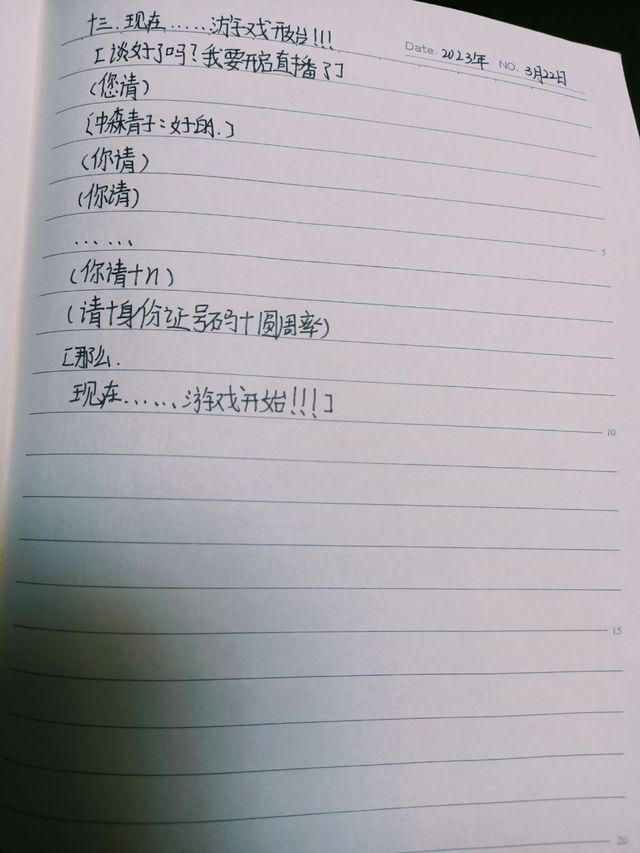 十三.现在……游戏开始!!!
Date. 2023年 NO. 3月22日
[谈好了吗?我要开启直播了]
(您请)
(中森青子:好的.]
(你请)
(你请)
……
(你请+n)
(请+身份证号码+圆周率)
[那么.
现在……游戏开始!!!]
5
10
15
20